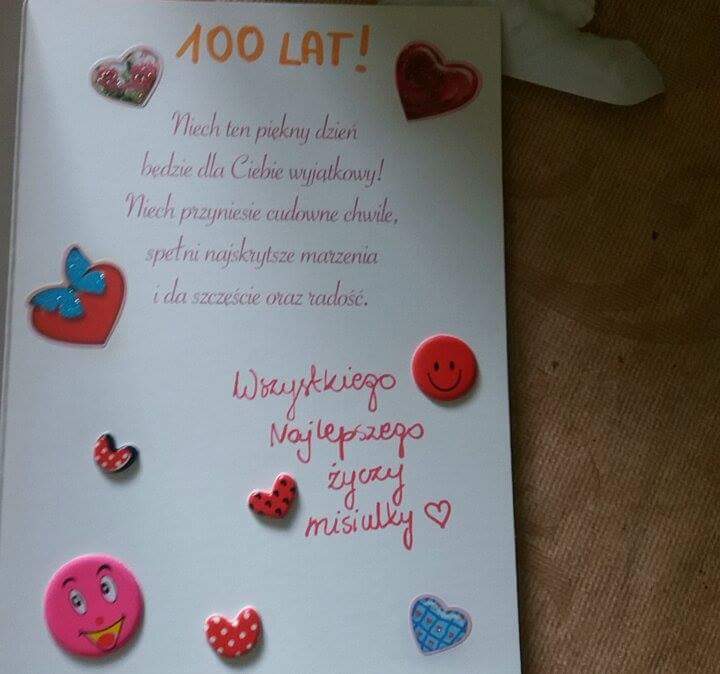 100 LAT!
Niech ten piękny dzień
będzie dla Ciebie wyjątkowy!
Niech przyniesie cudowne chwile,
spełni najskrytsze marzenia
i da szczęście oraz radość.
Wszystkiego
Najlepszego
życzy
misiulky ♡